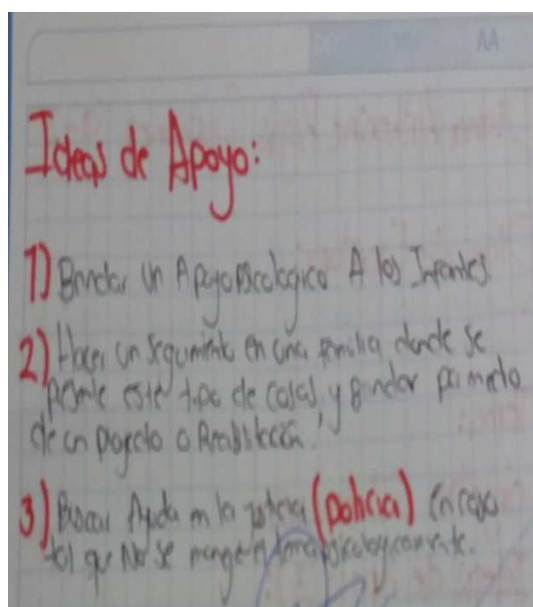 AA
Ideas de Apoyo:
1) Brindar un Apoyo Psicologico A los Infantes
2) Hacer un seguimiento en una familia donde se
presente este tipo de casos, y Brindar por medio
de un proyecto o
3) Buscar Ayuda en la justicia (policia) En caso
tal que No se psicologicamente.